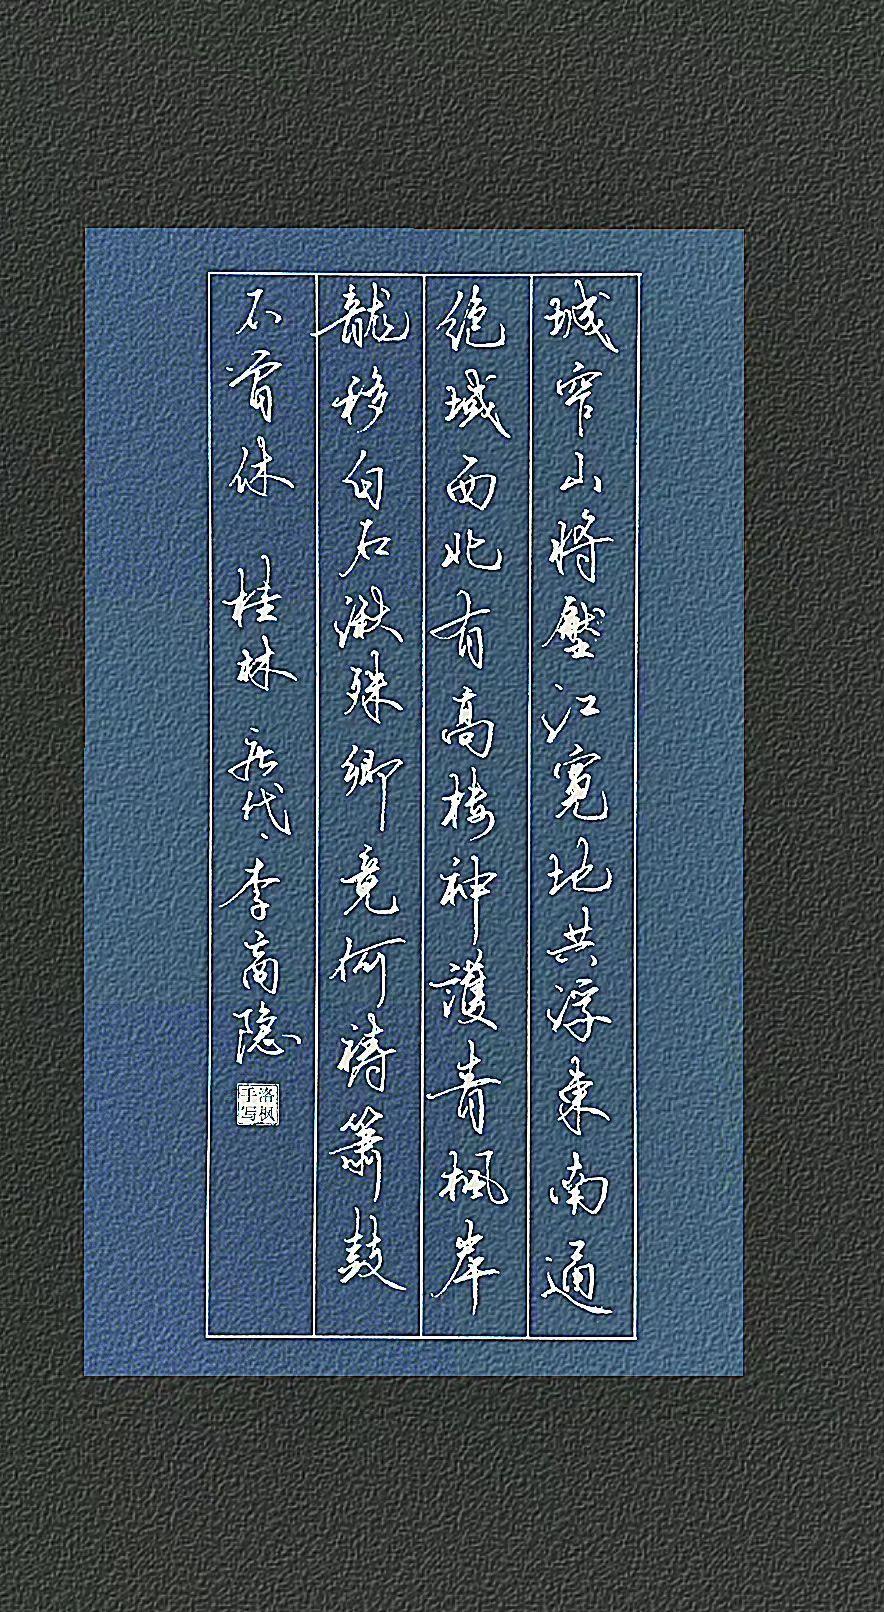 城窄山將壓江寬地共浮東南通
絶域西北有高楼神護青楓岸
龍移白石湫殊鄉竟何禱簫鼓
不曾休 桂林 唐代·李商隐
洛枫手写